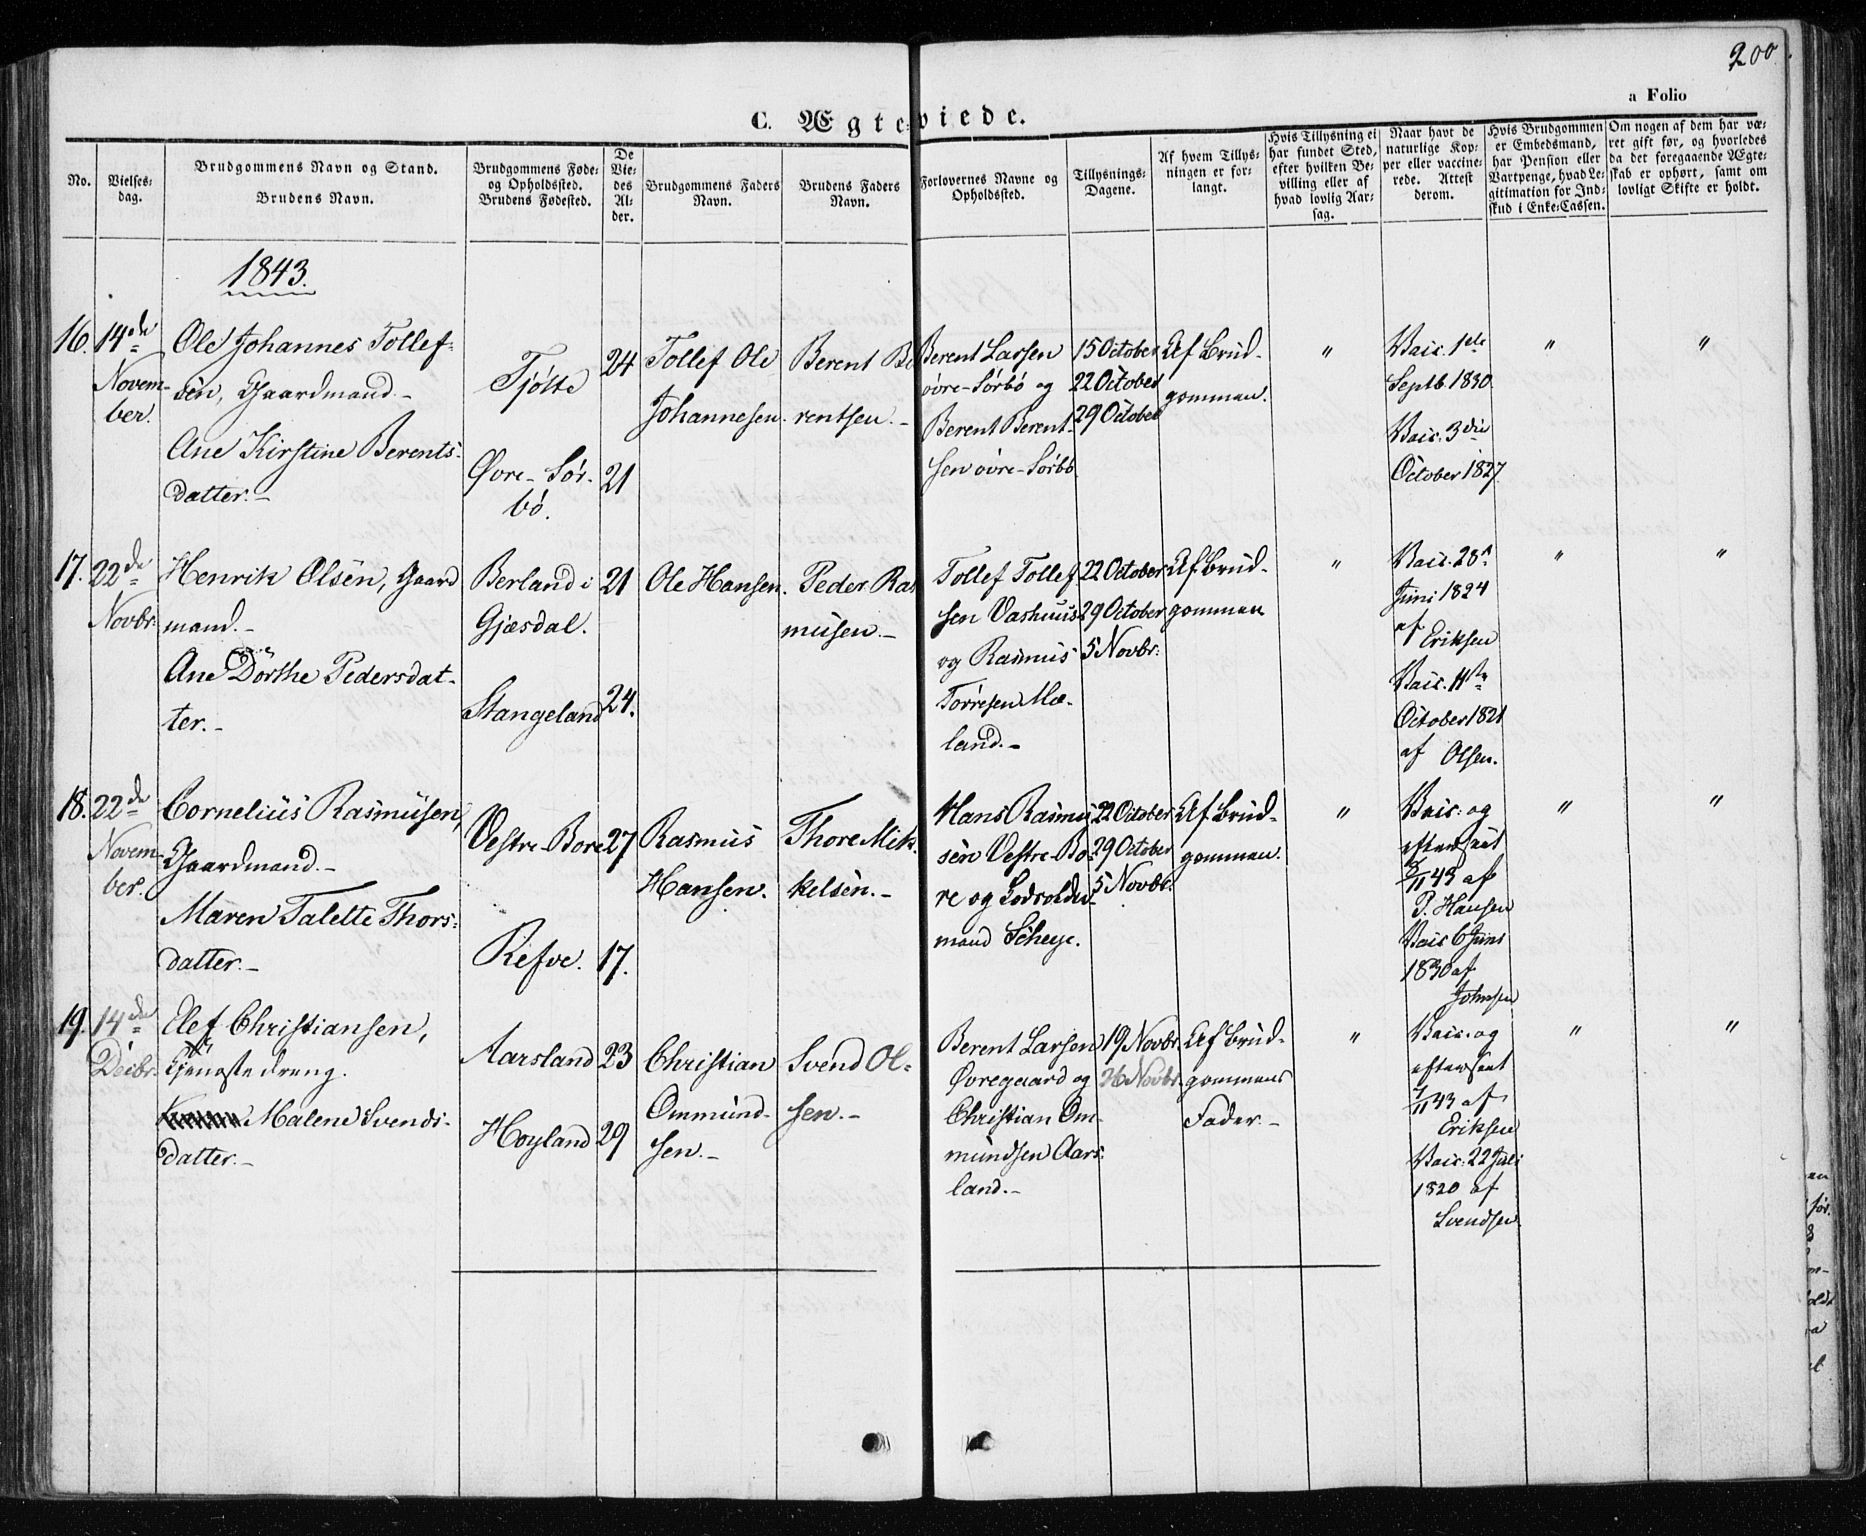 200
a Folio
C. Ægteviede.
No.
Vielses-
dag.
Brudgommens Navn og Stand.
Brudens Navn.
Brudgommens Føde-
og Opholdssted.
Brudens Fødested.
De
Vie-
des
Al-
der.
Brudgommens Faders
Navn.
Brudens Faders
Navn.
Forlovernes Navne og
Opholdssted.
Tillysnings-
Dagene.
Af hvem Tillys-
ningen er for-
langt.
Hvis Tillysning ei
har fundet Sted,
efter hvilken Be-
villing eller af
hvad lovlig Aar-
sag.
Naar havt de
naturlige Kop-
per eller vaccine-
rede. Attest
derom.
Hvis Brudgommen
er Embedsmand,
har Pension eller
Vartpenge, hvad Le-
gitimation for Ind-
skud i Enke-Cassen.
Om nogen af dem har væ-
ret gift før, og hvorledes
da det foregaaende Ægte-
skab er ophørt, samt om
lovligt Skifte er holdt.
1843.
16.
14de
Novem-
ber.
Ole Johannes Tollef-
sen, Gaardmand.-
Ane Kirstine Berents-
datter.-
Tjøtte
Øvre-Sør-
bø.
24
21
Tollef Ole
Johannesen.
Berent Be
rentsen.-
Berent Larsen
øvre-Sørbø og
Berent Berent-
sen øvre-Sørbø
15 October
22 October
29 October
Af Brud-
gommen.
"
Vaic. 1ste
Septb. 1830.
Vaic. 3die
October 1827.
"
"
17.
22de
Novbr.
Henrik Olsen, Gaard
mand.-
Ane Dorthe Pedersdat-
ter.-
Berland i
Gjæsdal.
Stangeland
21
24.
Ole Hansen.
Peder Ras
musen.-
Tollef Tollef
sen Vashuus
og Rasmus
Torresen Mæ-
land.-
22 October
29 October
5 Novbr.
Af Brud-
gommen
"
Vaic. 28
Juni 1824
af
Eriksen
Vaic. 11te
October 1821
af Olsen.
"
"
18.
22de
Novem-
ber.
Cornelius Rasmusen,
Gaardmand.-
Maren Talette Thors-
datter.-
Vestre-Bore
Refve.
27
17.
Rasmus
Hansen.
Thore Mik-
kelsen.-
Hans Rasmu
sen Vestre-Bo-
re og
mand Scheje.
22 October
29 October
5 Novbr.
Af Brud-
gommen.
"
Vaic. og
efterseet
11 43 af
P. Hansen
Vaic 6 Juni
1830 af
Johnsen
"
"
19.
14de
Decbr.
Elef Christiansen,
Tjenestedreng.
Malene Svends-
datter.-
Aarsland
Hoyland
23
29
Christian
Ommund-
sen.-
Svend Ol-
sen.-
Berent Larsen
Øvregaard og
Christian Om-
mundsen Aars-
land.-
19 Novbr.
26 Novbr.
Af Brud-
gommens
Fader.-
"
Vaic. og
efterseet
7/11 43 af
Eriksen
Vaic. 22 Juli
1820 af
Svendsen
"
"